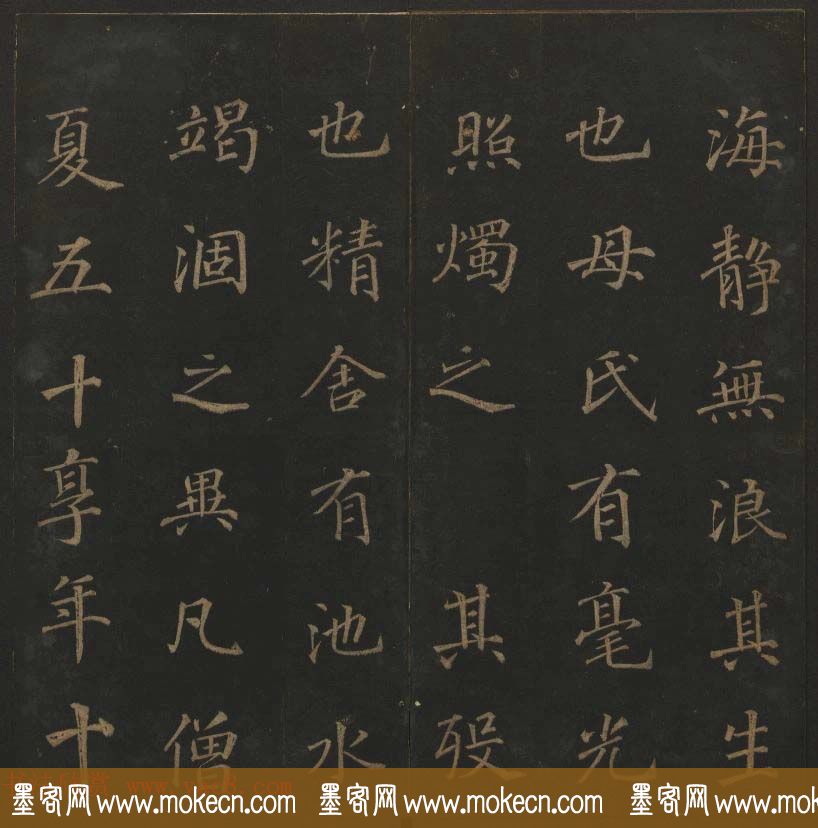 海静無浪其生
也母氏有毫光
照燭之其歿
也精舍有池水
竭涸之異凡僧
夏五十享年十
墨客网 www.mokecn.com 墨客网 www.mokecn.com 墨客网 www.mokecn.com